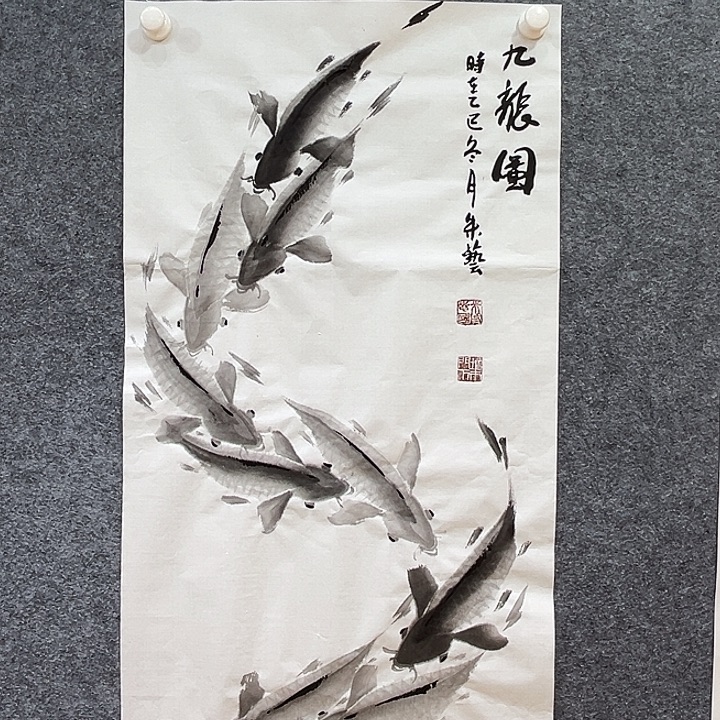 九龍圖
時在乙巳冬月朱藝